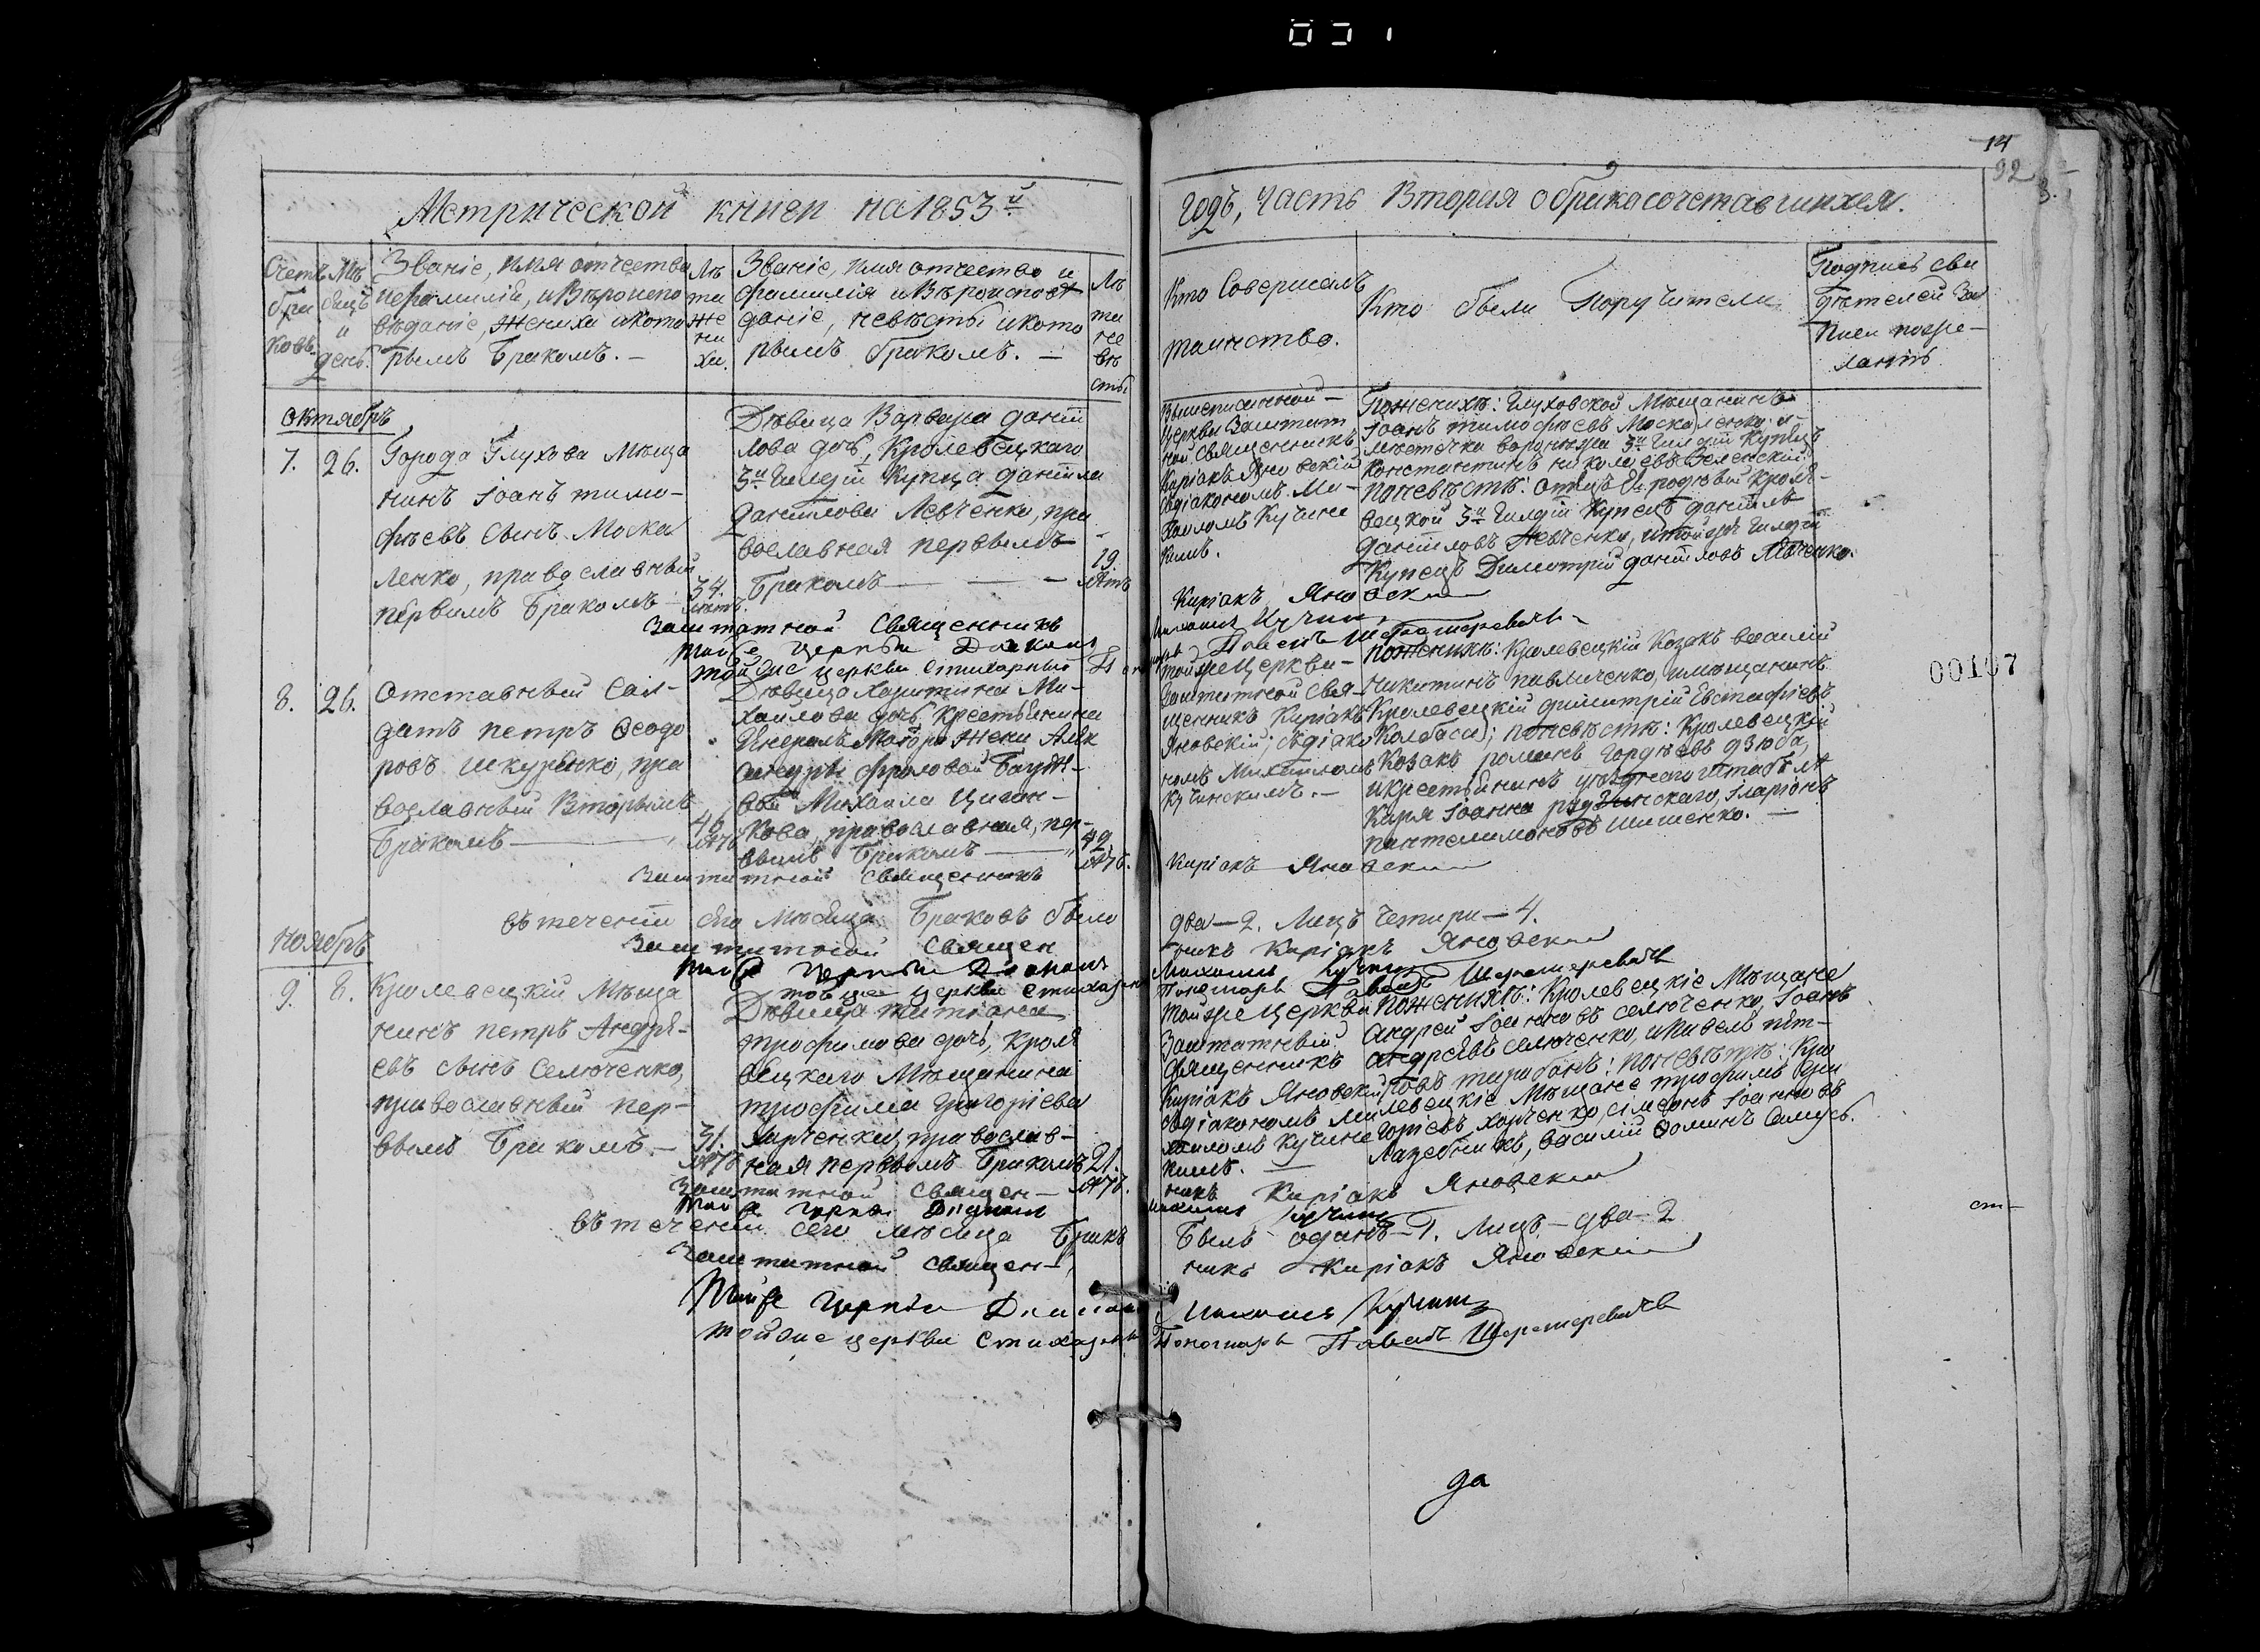 031
14
92
Метрической книги на 1853й
годъ, Часть Вторая о бракосочетавшихся.
Счетъ браковъ.
Мѣсяцъ и день.
Званіе, имя отчество
и фамилія, и Вѣроиспо
вѣданіе, Жениха и кото
рымъ Бракомъ. —
Лѣ
та
же
ни
ха.
Званіе, имя отчество и
фамилія и Вѣроиспов
даніе, невѣсты и кото
рымъ бракомъ. —
Лѣ
та
не
вѣ
сты
Кто Совершалъ
таинство.
Кто были Поручители
Подпись сви
дѣтелей За
писи по же—
ланію
Октябрь
7. 26.
Города Глухова Мѣща
нинъ Іоанъ тимо—
фѣевъ сынъ Моска
ленко, православный
первымъ Бракомъ
34.
лѣтъ.
Дѣвица Варвара даніи
лова дочь, Кролевецкаго
3й Гилдіи Купца даніила
данілова Левченко, пра
вославная первымъ
Бракомъ —
19.
лѣтъ
Вышеписанной—
Церкви Заштат
ной священникъ
Киріакъ Яновскій
съ діакономъ Ми—
хаиломъ Кучинс
кимъ.
По женихѣ: Глуховской Мѣщанинъ
Іоанъ тимофѣевъ Москаленко и
мѣстечка воронежа 3й Гилдіи Купецъ
Константинъ николаевъ Зеленскій
по невѣстѣ: отецъ Ея родной Кроле—
вецкой 3й Гилдіи Купецъ данііл
данііловъ Левченко, и той же Гилдіи
Купецъ Димитрій данііловъ Левченко.
Заштатной Священникъ Киріакъ Яновскій
Той же церкви Діаконъ Михаилъ Кучин
той же церкви стихарный Пономарь Павелъ Шереметревичъ
8. 26.
Отставный Сал—
датъ петръ Ѳеодо
ровъ шкуренко, пра
вославный Вторымъ
Бракомъ —
40
лѣтъ
Дѣвица Харитина Ми—
хайлова дочь, Крестьянина
Генералъ Маіора жены Алек
сандры фроловой
Михаила Циган—
кова, православная, пер—
вымъ Бракомъ —
42
лѣтъ.
той же Церкви—
Заштатной Свя—
щенникъ Киріакъ
Яновскій; съ діако
номъ Михаиломъ
Кучинскимъ. —
по женихѣ: Кролевецкій Козакъ василій
никитинъ павличенко, и мѣщанинъ
Кролевецкій димитрій Евстафіевъ
Колбаса; по невѣстѣ: Кролевецкій
Козакъ романъ гордѣевъ дзюба,
и крестьянинъ уѣзднаго Штабъ лѣ
каря Іоанна рудзинскаго, Іларіонъ
пантелимоновъ шишенко. —
Заштатной священникъ Киріакъ Яновскій
въ теченіи сего мѣсяца Браковъ было два—2. Лицъ четыри—4.
Заштатной Священникъ Киріакъ Яновскій
Той же церкви Діаконъ Михаилъ Кучин
той же церкви стихарный Пономарь Павелъ Шереметревичъ
ноябрь
9. 8.
Кролевецкій Мѣща
нинъ петръ Андрѣ—
евъ сынъ Селюченко,
православный пер—
вымъ Бракомъ. —
31.
лѣтъ
Дѣвица татіана
трофимова дочь, Кроле
вецкаго Мѣщанина
трофима григоріева
Харченка, православ—
ная первымъ Бракомъ
21.
лѣтъ.
той же Церкви
Заштатный
священникъ
Киріакъ Яновскій
съ діакономъ Ми
хаиломъ Кучинс
кимъ. —
по женихѣ: Кролевецкіе Мѣщане
Андрей Іоанновъ селюченко, Іоанъ
андреевъ селюченко, и павелъ пет—
ровъ тарабанъ; по невѣстѣ: Кро
левецкіе Мѣщане трофимъ Гри
горіевъ харченко, сімеонъ Іоанновъ
Лазебникъ, Василій Ѳоминъ Самусь.
Заштатной Священникъ Киріакъ Яновскій
Той же церкви Діаконъ Михаилъ Кучин
въ теченіи сего мѣсяца Бракъ Былъ одинъ—1. Лицъ—два—2
Заштатной Священникъ Киріакъ Яновскій
Той же Церкви Діаконъ Михаилъ Кучин
той же церкви Стихарный Пономарь Павелъ Шереметревичъ
00107
ст—
да